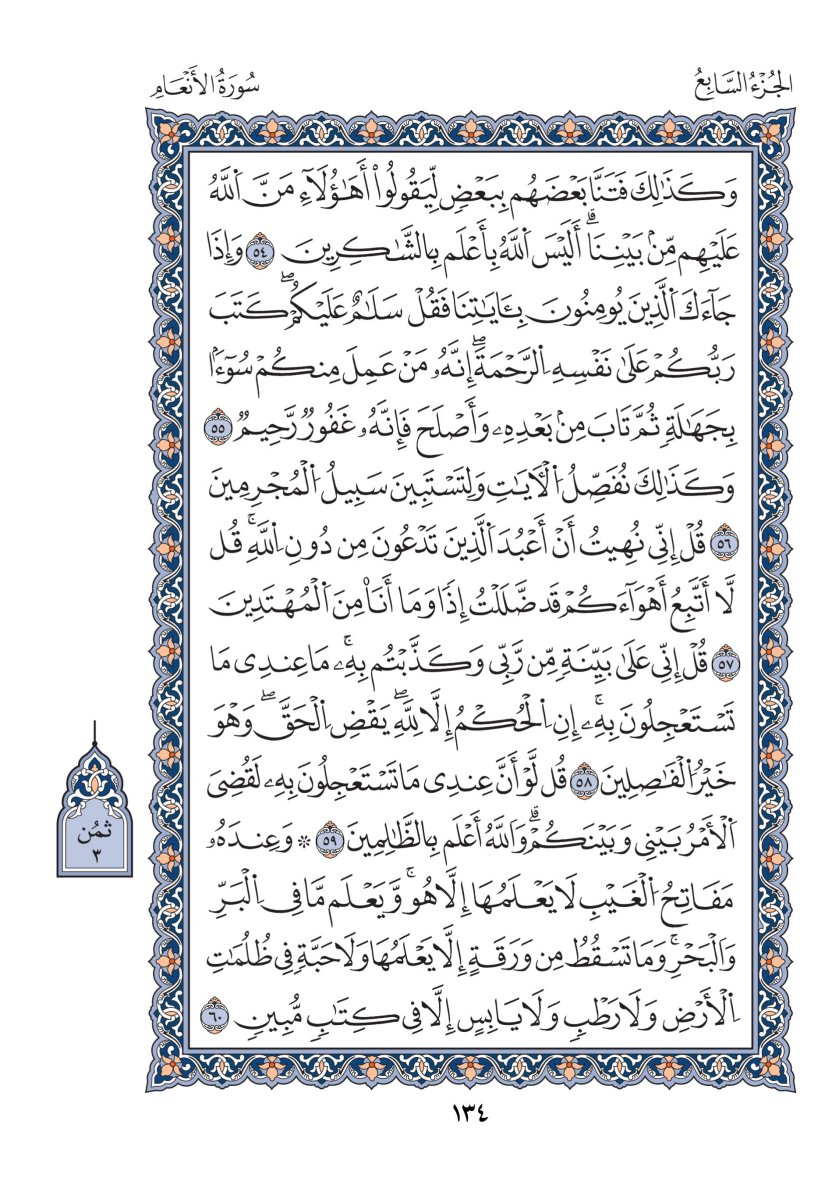 الجُزْءُ السَّابِعُ
سُورَةُ الأَنْعَامِ
وَكَذَٰلِكَ فَتَنَّا بَعْضَهُم بِبَعْضٖ لِّيَقُولُواْ أَهَٰؤُلَآءِ مَنَّ اَ۬للَّهُ
عَلَيْهِم مِّنۢ بَيْنِنَاۗ أَلَيْسَ اَ۬للَّهُ بِأَعْلَم بِالشَّٰكِرِينَ ٥٤ وَإِذَا
جَآءَكَ اَ۬لَّذِينَ يُومِنُونَ بِـَٔايَٰتِنَا فَقُلْ سَلَٰمٌ عَلَيْكُمْۖ كَتَبَ
رَبُّكُمْ عَلَىٰ نَفْسِهِ اِ۬لرَّحْمَةَۖ إِنَّهُۥ مَنْ عَمِلَ مِنكُمْ سُوٓءَۢا
بِجَهَٰلَةٖ ثُمَّ تَابَ مِنۢ بَعْدِهِۦ وَأَصْلَحَ فَإِنَّهُۥ غَفُورٞ رَّحِيمٞ ٥٥
وَكَذَٰلِكَ نُفَصِّلُ اُ۬لْأٓيَٰتِ وَلِتَسْتَبِينَ سَبِيلُ اُ۬لْمُجْرِمِينَ
٥٦ قُلْ إِنِّي نُهِيتُ أَنْ أَعْبُدَ اَ۬لَّذِينَ تَدْعُونَ مِن دُونِ اِ۬للَّهِۚ قُل
لَّا أَتَّبِعُ أَهْوَآءَكُمْ قَد ضَّلَلْتُ إِذٗا وَمَا أَنَا۠ مِنَ اَ۬لْمُهْتَدِينَ
٥٧ قُلْ إِنِّي عَلَىٰ بَيِّنَةٖ مِّن رَّبِّي وَكَذَّبْتُم بِهِۦۚ مَا عِندِي مَا
تَسْتَعْجِلُونَ بِهِۦۚ إِنِ اِ۬لْحُكْمُ إِلَّا لِلَّهِۖ يَقْضِ اِ۬لْحَقَّۖ وَهْوَ
خَيْرُ اُ۬لْفَٰصِلِينَ ٥٨ قُل لَّوْ أَنَّ عِندِي مَا تَسْتَعْجِلُونَ بِهِۦ لَقُضِيَ
اَ۬لْأَمْرُ بَيْنِي وَبَيْنَكُمْۗ وَاللَّهُ أَعْلَم بِالظَّٰلِمِينَ ٥٩ ۞ وَعِندَهُۥ
مَفَاتِحُ اُ۬لْغَيْبِ لَا يَعْلَمُهَا إِلَّا هُوۚ وَّيَعْلَم مَّا فِي اِ۬لْبَرِّ
وَالْبَحْرِۚ وَمَا تَسْقُطُ مِن وَرَقَةٍ إِلَّا يَعْلَمُهَا وَلَا حَبَّةٖ فِي ظُلُمَٰتِ
اِ۬لْأَرْضِ وَلَا رَطْبٖ وَلَا يَابِسٍ إِلَّا فِي كِتَٰبٖ مُّبِينٖ ٦٠
ثمُن
٣
١٣٤